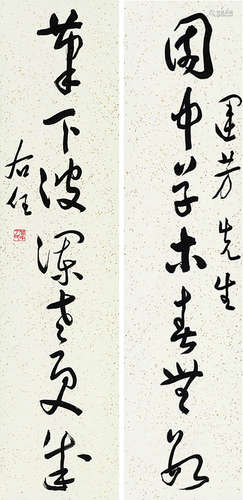 芳先生
園中草木春無數
筆下波瀾老更成
右任